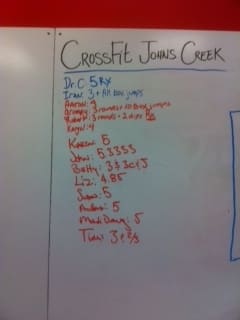 CROSSFIT JOHNS CREEK
Dr. C 5 RX
Ivan: 3 + All box jumps
Aaron: 4
Grumpy: 3 rounds + 10 Box jumps
Robert: 3 rounds + 2 dips
Kaye: 4
Karen: 5
John: 5.3333
Betty: 3
Liz: 4.85
Susan: 5
5
Mad Dawg: 5
Tim: 3 + 2/3